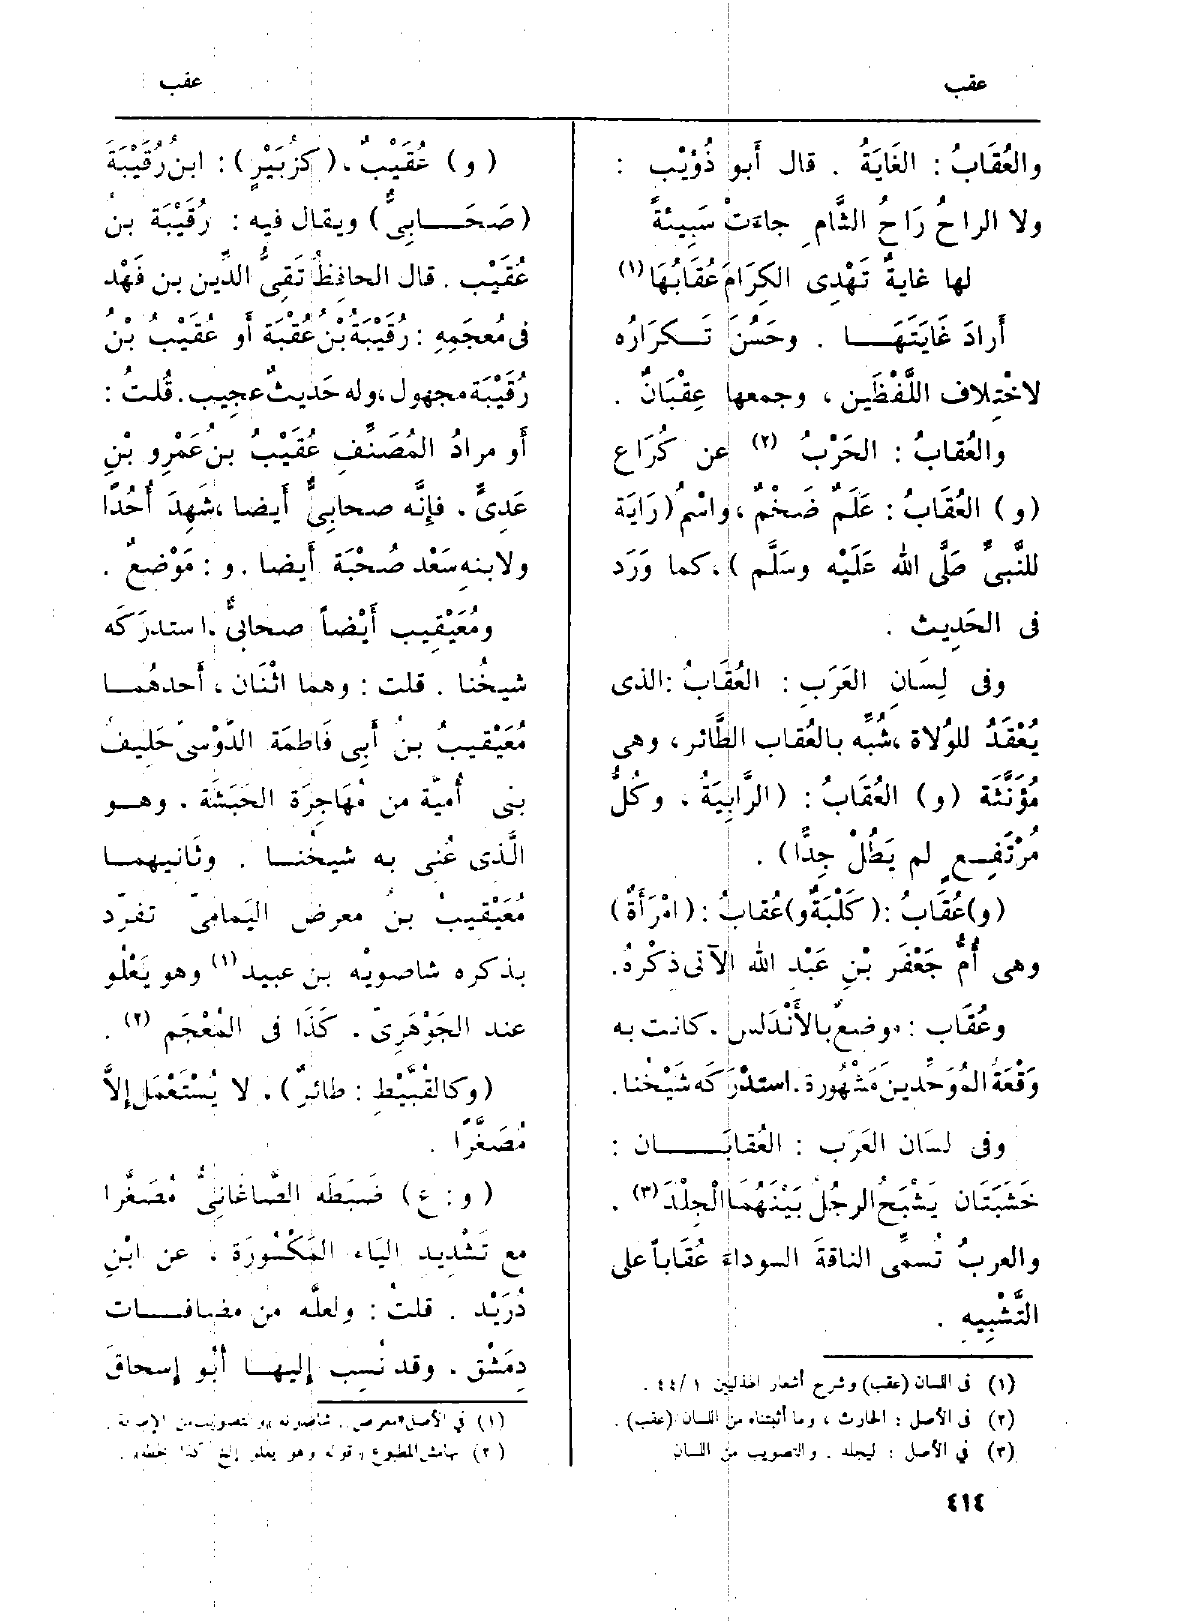 عقب
عقب
والعُقَابُ : الغَايَةُ . قال أَبو ذُوَيْب :
ولا الراحُ رَاحُ الشَّامِ جاءَتْ سَبِيئةً
لها غايةٌ تَهْدِى الكِرَامَ عُقَابُهَا (١)
أَرادَ غَايَتَهَـــا . وحَسُنَ تَـكرَارُه
لاخْتِلاف اللَّفْظَين ، وجمعها عِقْبَانٌ .
والعُقابُ : الحَرْبُ (٢) عن كُرَاع
(و) العُقَابُ : عَلَمٌ ضَخْمٌ ، واسْمُ (رَايَة
للنَّبىِّ صَلَّى الله عَلَيْه وسَلَّم ) ، كما وَرَد
فى الحَدِيث .
وفى لِسَانِ العَرَبِ : العُقَابُ : الذى
يُعْقَدُ للوُلاة ، شُبِّه بالعُقاب الطَّائر ، وهى
مُؤَنَّثَة (و) العُقَابُ : (الرَّابِيَةُ ، وكُلُّ
مُرْتَفِـعٍ لم يَطُلْ جِدًّا) .
(و) عُقَابُ : (كَلْبَةٌ و) عُقابُ : (امْرَأَةٌ)
وهى أُمُّ جَعْفَر بْنِ عَبْدِ الله الآتى ذكْرهُ .
وعُقَاب : موضعٌ بالأَنْدَلس . كانت به
وَقْعَةُ المُوَحِّدين مَشْهُورة . استدْرَكَه شَيْخُنا .
وفى لسَان العَرَب : العُقابَـــــان :
خَشَبَتَان يَشْبَحُ الرجُلُ بَيْنَهُمَا الْجِلْدَ (٣) .
والعربُ تُسمِّى الناقةَ السوداءَ عُقَاباً على
التَّشْبِيهِ .
(١) فى اللسان (عقب) وشرح أشعار الهذليين ١ /٤٤ .
(٢) فى الأصل : الحارث ، وما أثبتناه من اللسان (عقب) .
(٣) فى الأصل : ليجلد . والتصويب من اللسان
(و) عُقَيْبٌ . (كزُبَيْرٍ) : ابنُ رُقَيْبَةَ
(صَحَـــابِىٌّ) ويقال فيه : رُقَيْبَة بنُ
عُقَيْب . قال الحافِظُ تَقِىُّ الدِّين بن فَهْد
فى مُعجَمِهِ : رُقَيْبَةُ بْنُ عُقْبَة أَو عُقَيْبُ بْنُ
رُقَيْبَة مجهول ، وله حَدِيثٌ عجِيب . قُلتُ :
أَو مرادُ المُصَنِّفِ عُقَيْبُ بنُ عَمْرِو بْنِ
عَدِىٍّ . فإِنَّه صحابىٌّ أَيضا ، شَهِدَ أُحُدًا
ولابنهِ سَعْد صُحْبَة أَيضا . و : مَوْضعٌ .
ومُعَيْقِيب أَيْضاً صحابىٌّ . استدرَكَه
شيخُنا . قلت : وهما اثْنَان ، أَحدهُمـا
مُعَيْقيبُ بنُ أَبِى فَاطمَة الدَّوْسىّ حَليفُ
بنى أُميّة من مُهَاجِرَة الحَبَشَة . وهــو
الَّذى عُنى به شيخْنــا . وثَانيهمــا
مُعَيْقيبُ بنُ معرض اليَمامىّ تفرّد
بذكره شاصويْه بن عبيد (١) وهو يَعْلُو
عند الجَوْهَرِىّ . كَذَا فى المُعْجَم (٢) .
(وكالقُبَّيْطِ : طائرٌ) . لا يُسْتَعْمَل إِلاَّ
مُصَغَّرًا .
( و : ع ) ضَبَطَه الصَّاغَانِىُّ مُصَغَّرا
مع تَشْدِيد اليَاء المَكْسُورَة ، عن ابْنِ
دُرَيْد . قلتُ : ولعلَّه من مضافــات
دِمَشْق . وقد نُسِب إِليهــا أَبُو إِسحاقَ
(١) فى الأصل «معرص .. شاصونه» والتصويب من الإصابة .
(٢) بهامش المطبوع «قوله وهو يعلو إلخ كذا بخطه» .
٤١٤